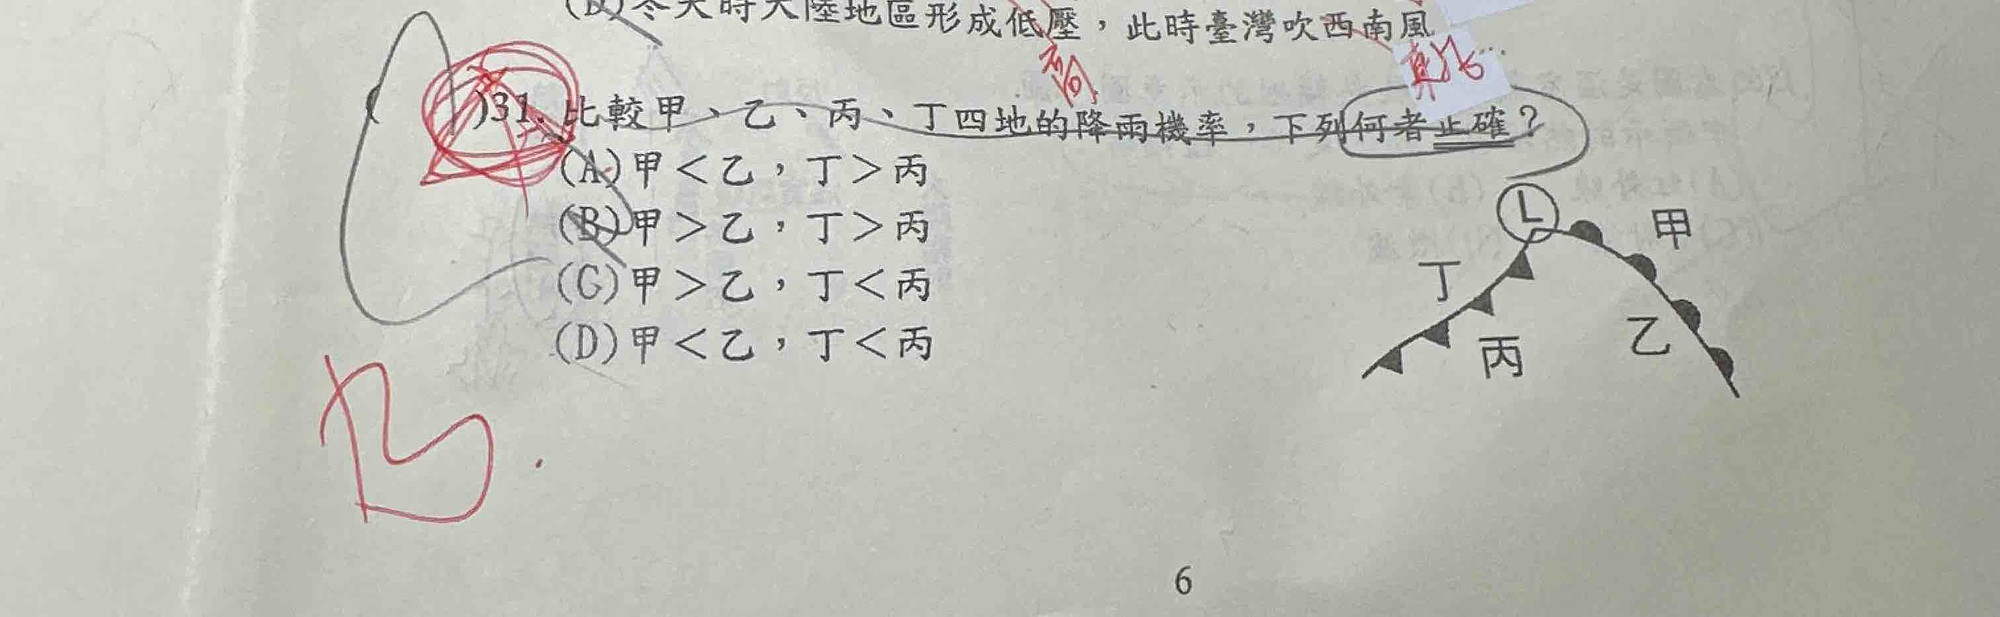 (D)冬天時大陸地區形成低壓，此時臺灣吹西南風
高
)31.比較甲、乙、丙、丁四地的降雨機率，下列何者正確？
(A)甲＜乙，丁＞丙
(B)甲＞乙，丁＞丙
(C)甲＞乙，丁＜丙
(D)甲＜乙，丁＜丙
L
甲
丁
乙
丙
B.
6